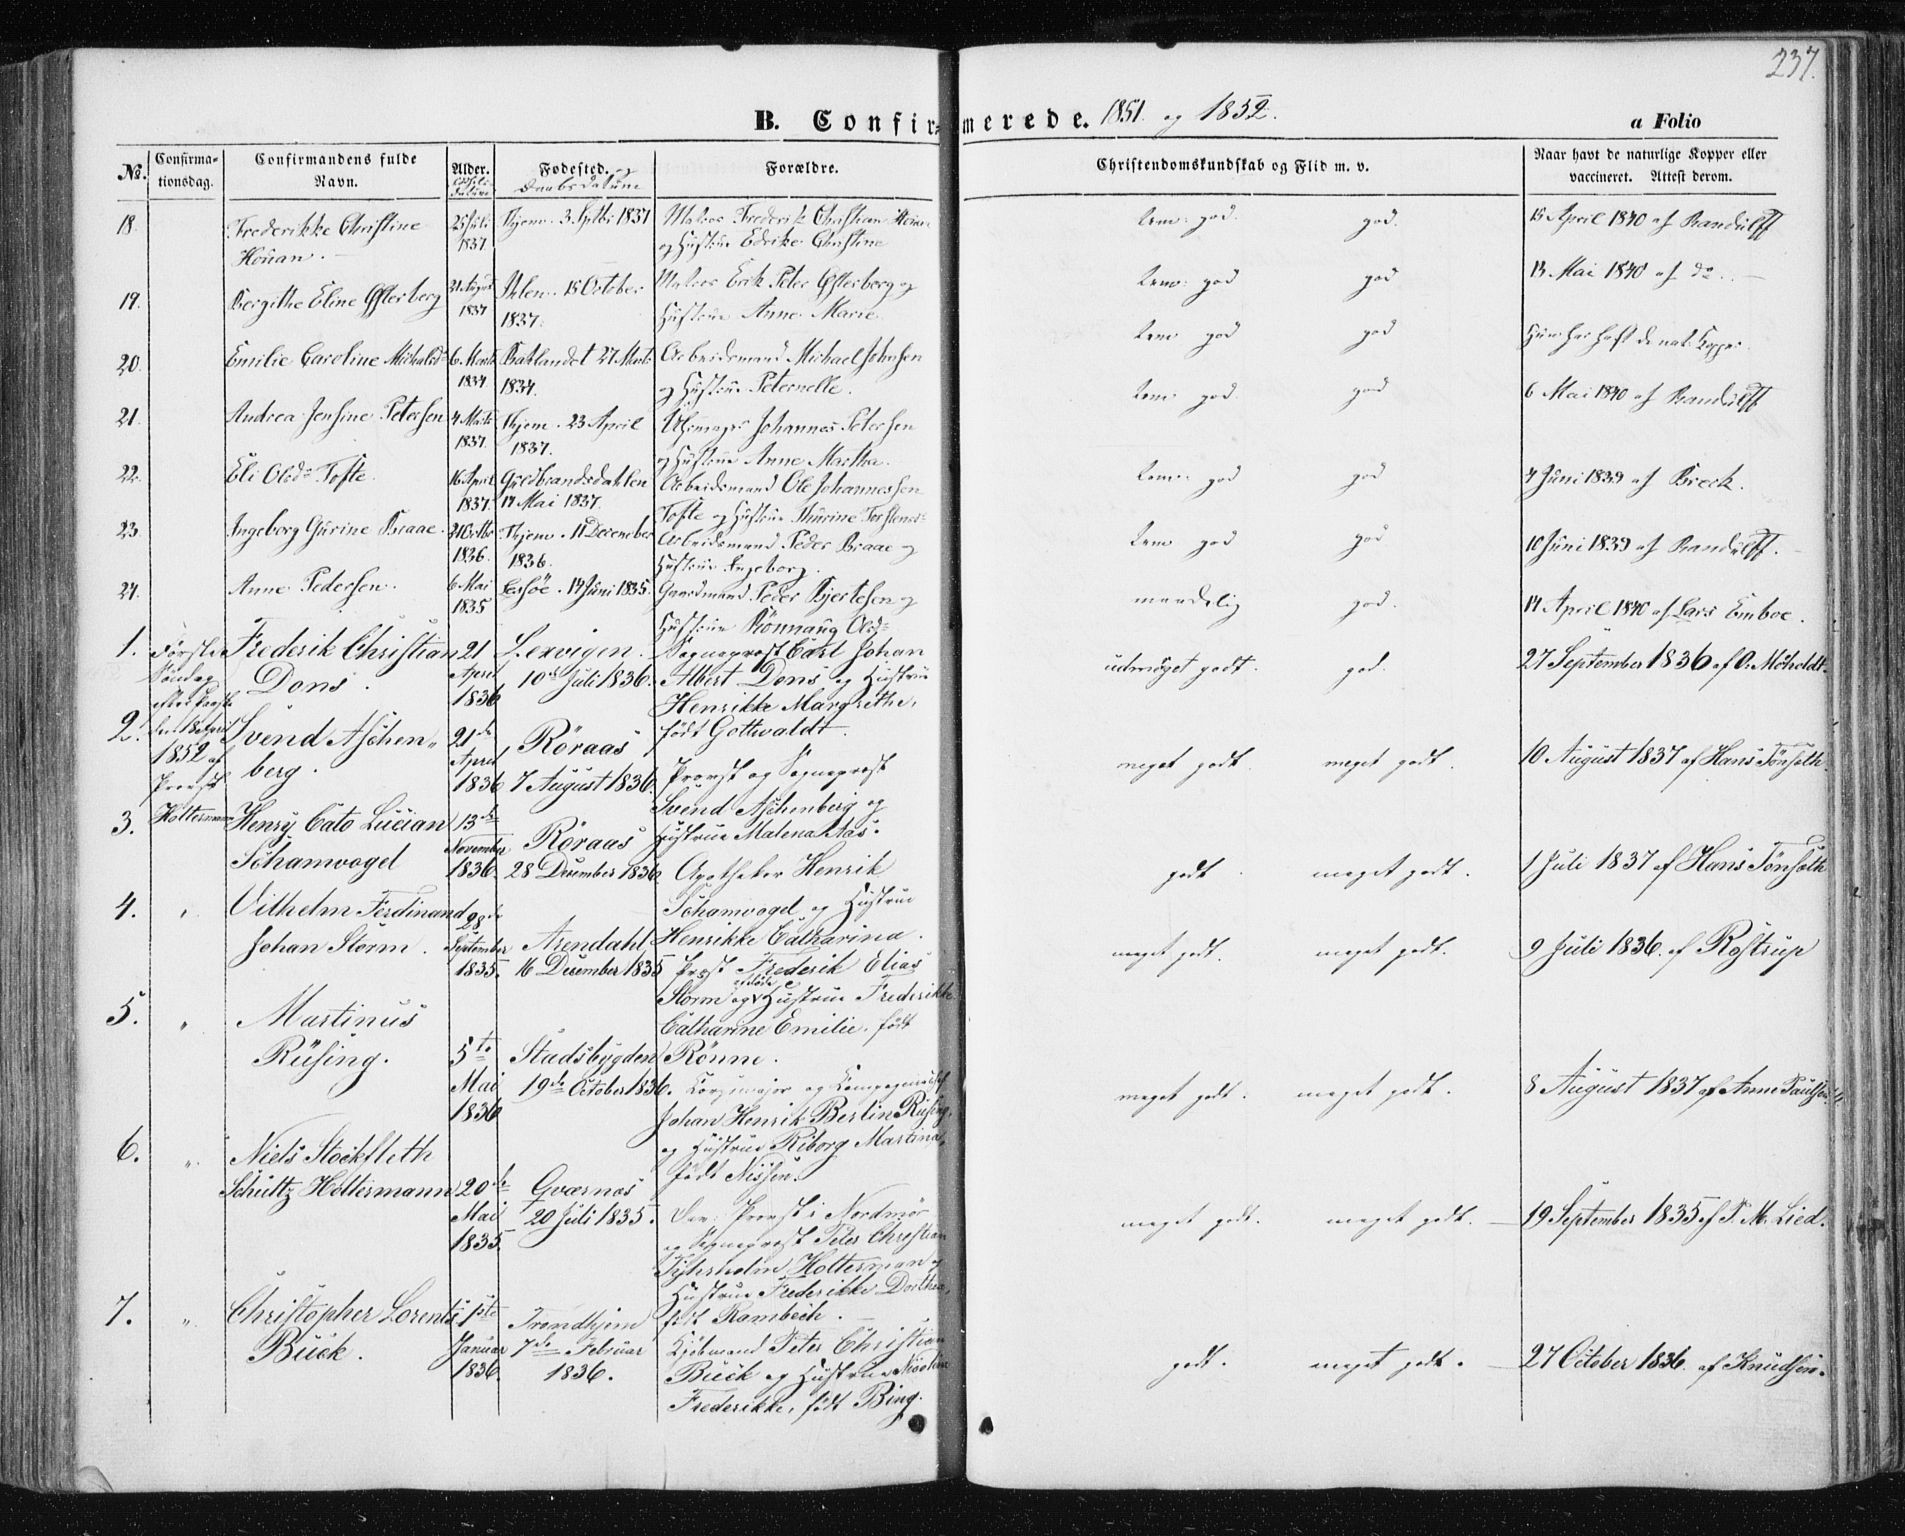 237.
B. Confirmerede. 1851. og 1852.
a Folio
No.
Confirmationsdag.
Confirmandens fulde Navn.
Alder.
Fødested. og Daabsdatum
Forældre.
Christendomskundskab og Flid m. v.
Naar havt de naturlige Kopper eller vaccineret. Attest derom.
18. Frederikke Christine 25 Juli Thjem. 3. Septbr 1837 Frederik Christian god. god. 15 April 1840 af Randulff
Houan. 1837 og Hustrue Edrike Christine
19. Bergithe Eline Østerberg 1837 Ihlen. 15 October Erik Peter Østerberg og god god 13 Mai 1840 af do.
1837. Hustrue Anne Marie
20. Emilie Caroline Michalsd 6 Marts Baklandet 27 Marts Arbeidsmand Michael Johnsen god god Hun har haft de nat: Kopper.
1834. 1834. og Hustrue Peternelle.
21. Andrea Jensine Petersen 4 Marts Thjem. 23 April Uhrmager Johannes Petersen god. god 6 Mai 1840 af Randulff
1837. 1837. og Hustrue Anne Martha.
22. Eli Olsd: Tofte. 16 April Guldbrandsdahlen Arbeidsmand Ole Johannessen god god 4 Juni 1839 af Breck.
1837. 14 Mai 1837. Tofte og Hustrue Thurine Torstens:
23. Ingeborg Gurine Braae. 21 Octbr Thjem. 11 December Arbeidsmand Peder Braae og god god 10 Juni 1839 af Randulff.
1836. 1836. Hustrue Ingeborg.
24. Anne Pedersen. 6 Mai Lessöe. 14 Juni 1835. Gaardmand Peder Bjertesen og maadelig god. 14 April 1840 af Lars Emboe.
1835 Hustrue Rönnaug Olsd:
1. Første Frederik Christian 21 Lexvigen. Sognepræst Carl Johan udmærket godt. god. 27 September 1836 af O. Möholdt.
Søndag Dons. April 10de Juli 1836. Albert Dons og Hustrue
efter Paaske 1836 Henrikke Margrethe,
2. den 18 April Svend Aschen„ 21de Röraas født Gottwaldt.
1852 af berg. April 7 August 1836 Provst og Sognepræst meget godt. meget godt. 10 August 1837 af Hans Tönseth.
Provst 1836 Svend Aschenberg og
3. Holtermann Henry Cato Lucian 13de Röraas Hustrue Malena Aas.
Schamvogel November 28 December 1836 Apotheker Henrik godt. meget godt. 1 Juli 1837 af Hans Tönseth
1836. Schamvogel og Hustrue
4. „ Vilhelm Ferdinand 28de Arendahl Henrikke Catharina.
Johan Storm. September 16 December 1835 Præst Frederik Elias meget godt. meget godt. 9 Juli 1836. af Rostrup
1835. Storm og afdøde Hustrue Frederikke
5. „ Martinus Catharine Emilie, født
Rüsing. 5te Stadsbygden Rönne.
Mai 19de October 1836. og meget godt. meget godt. 8 August 1837 af Anne Paulsen.
1836 Johan Henrik Berlin Rüsing,
6. „ Niels Stockfleth og Hustrue Riborg Martina,
Schultz Holtermann 20de Qværnæs født Nissen.
Mai 20 Juli 1835. Provst i Nordmør meget godt. meget godt. 19 September 1835 af P. M. Lied.
1835. og Sognepræst Peter Christian
Holterman og
Hustrue Frederikke Dorthea,
7. „ Christopher Lorents 1ste Trondhjem født Rambech.
Buck. Januar 7de Februar Kjøbmand Peter Christian godt. meget godt. 27 October 1836. af Knudsen.
1836. 1836. Buck og Hustrue Nicoline
Frederikke, født Bing.